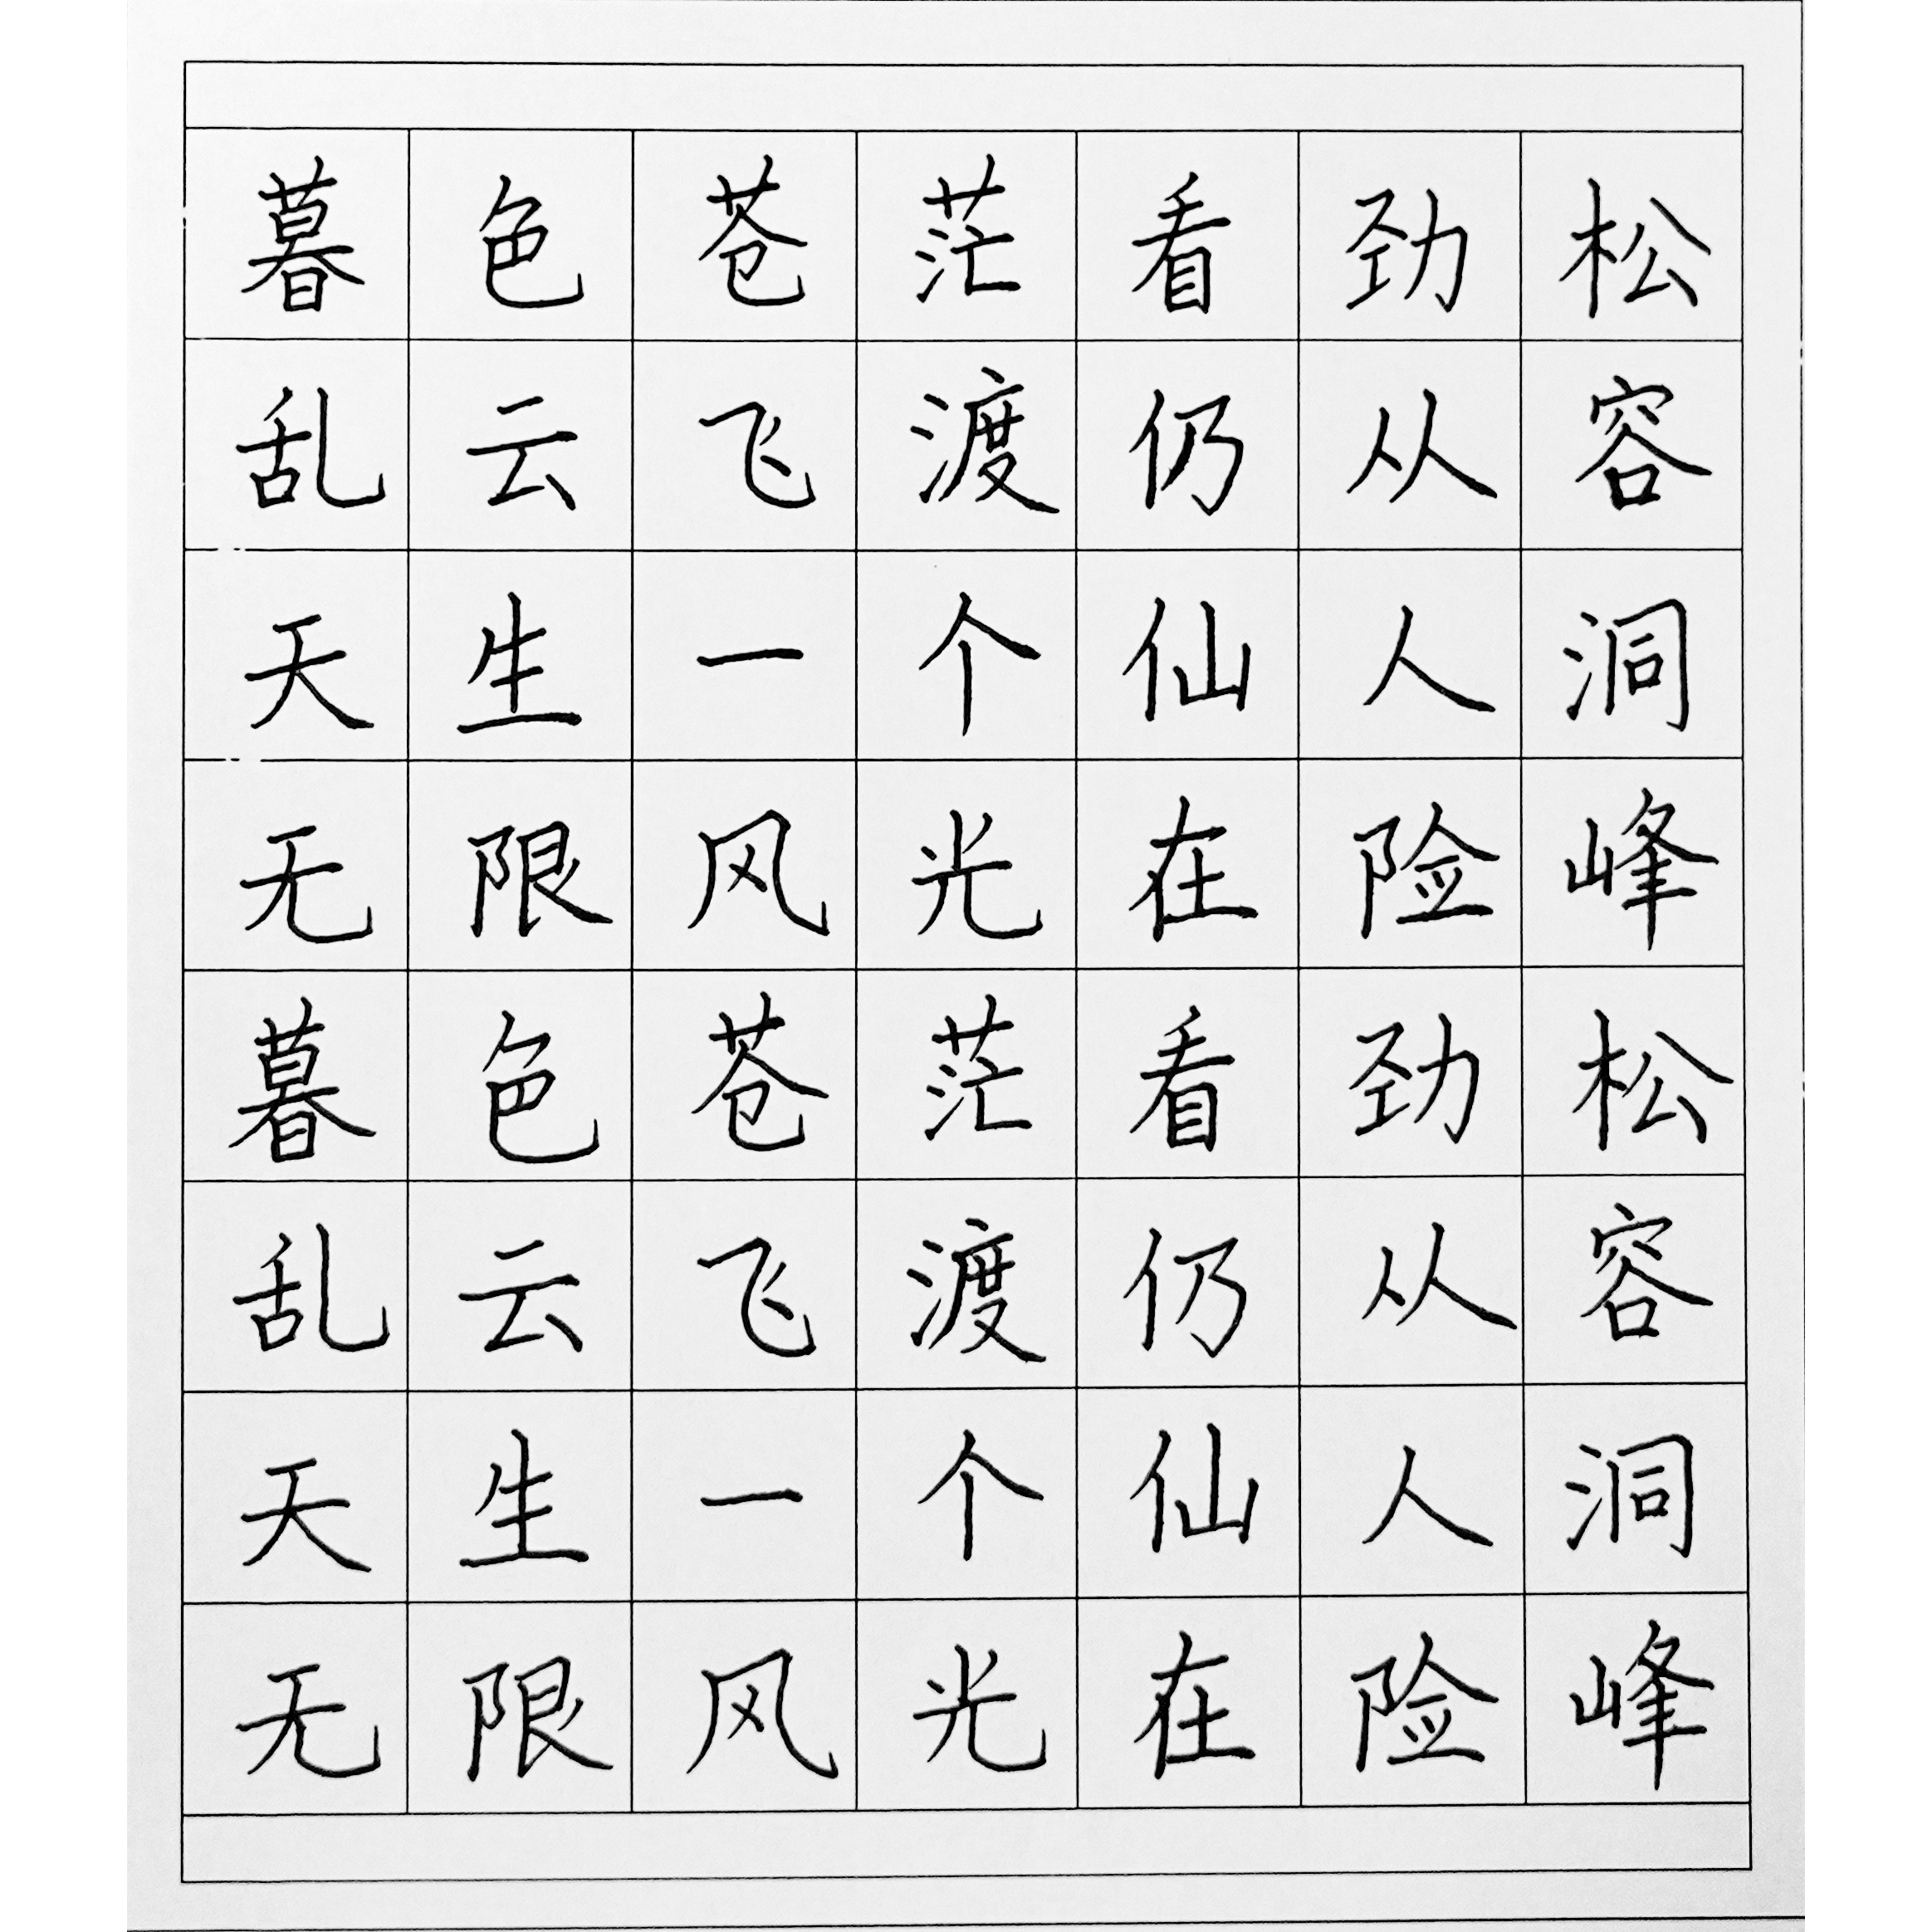 暮色苍茫看劲松
乱云飞渡仍从容
天生一个仙人洞
无限风光在险峰
暮色苍茫看劲松
乱云飞渡仍从容
天生一个仙人洞
无限风光在险峰